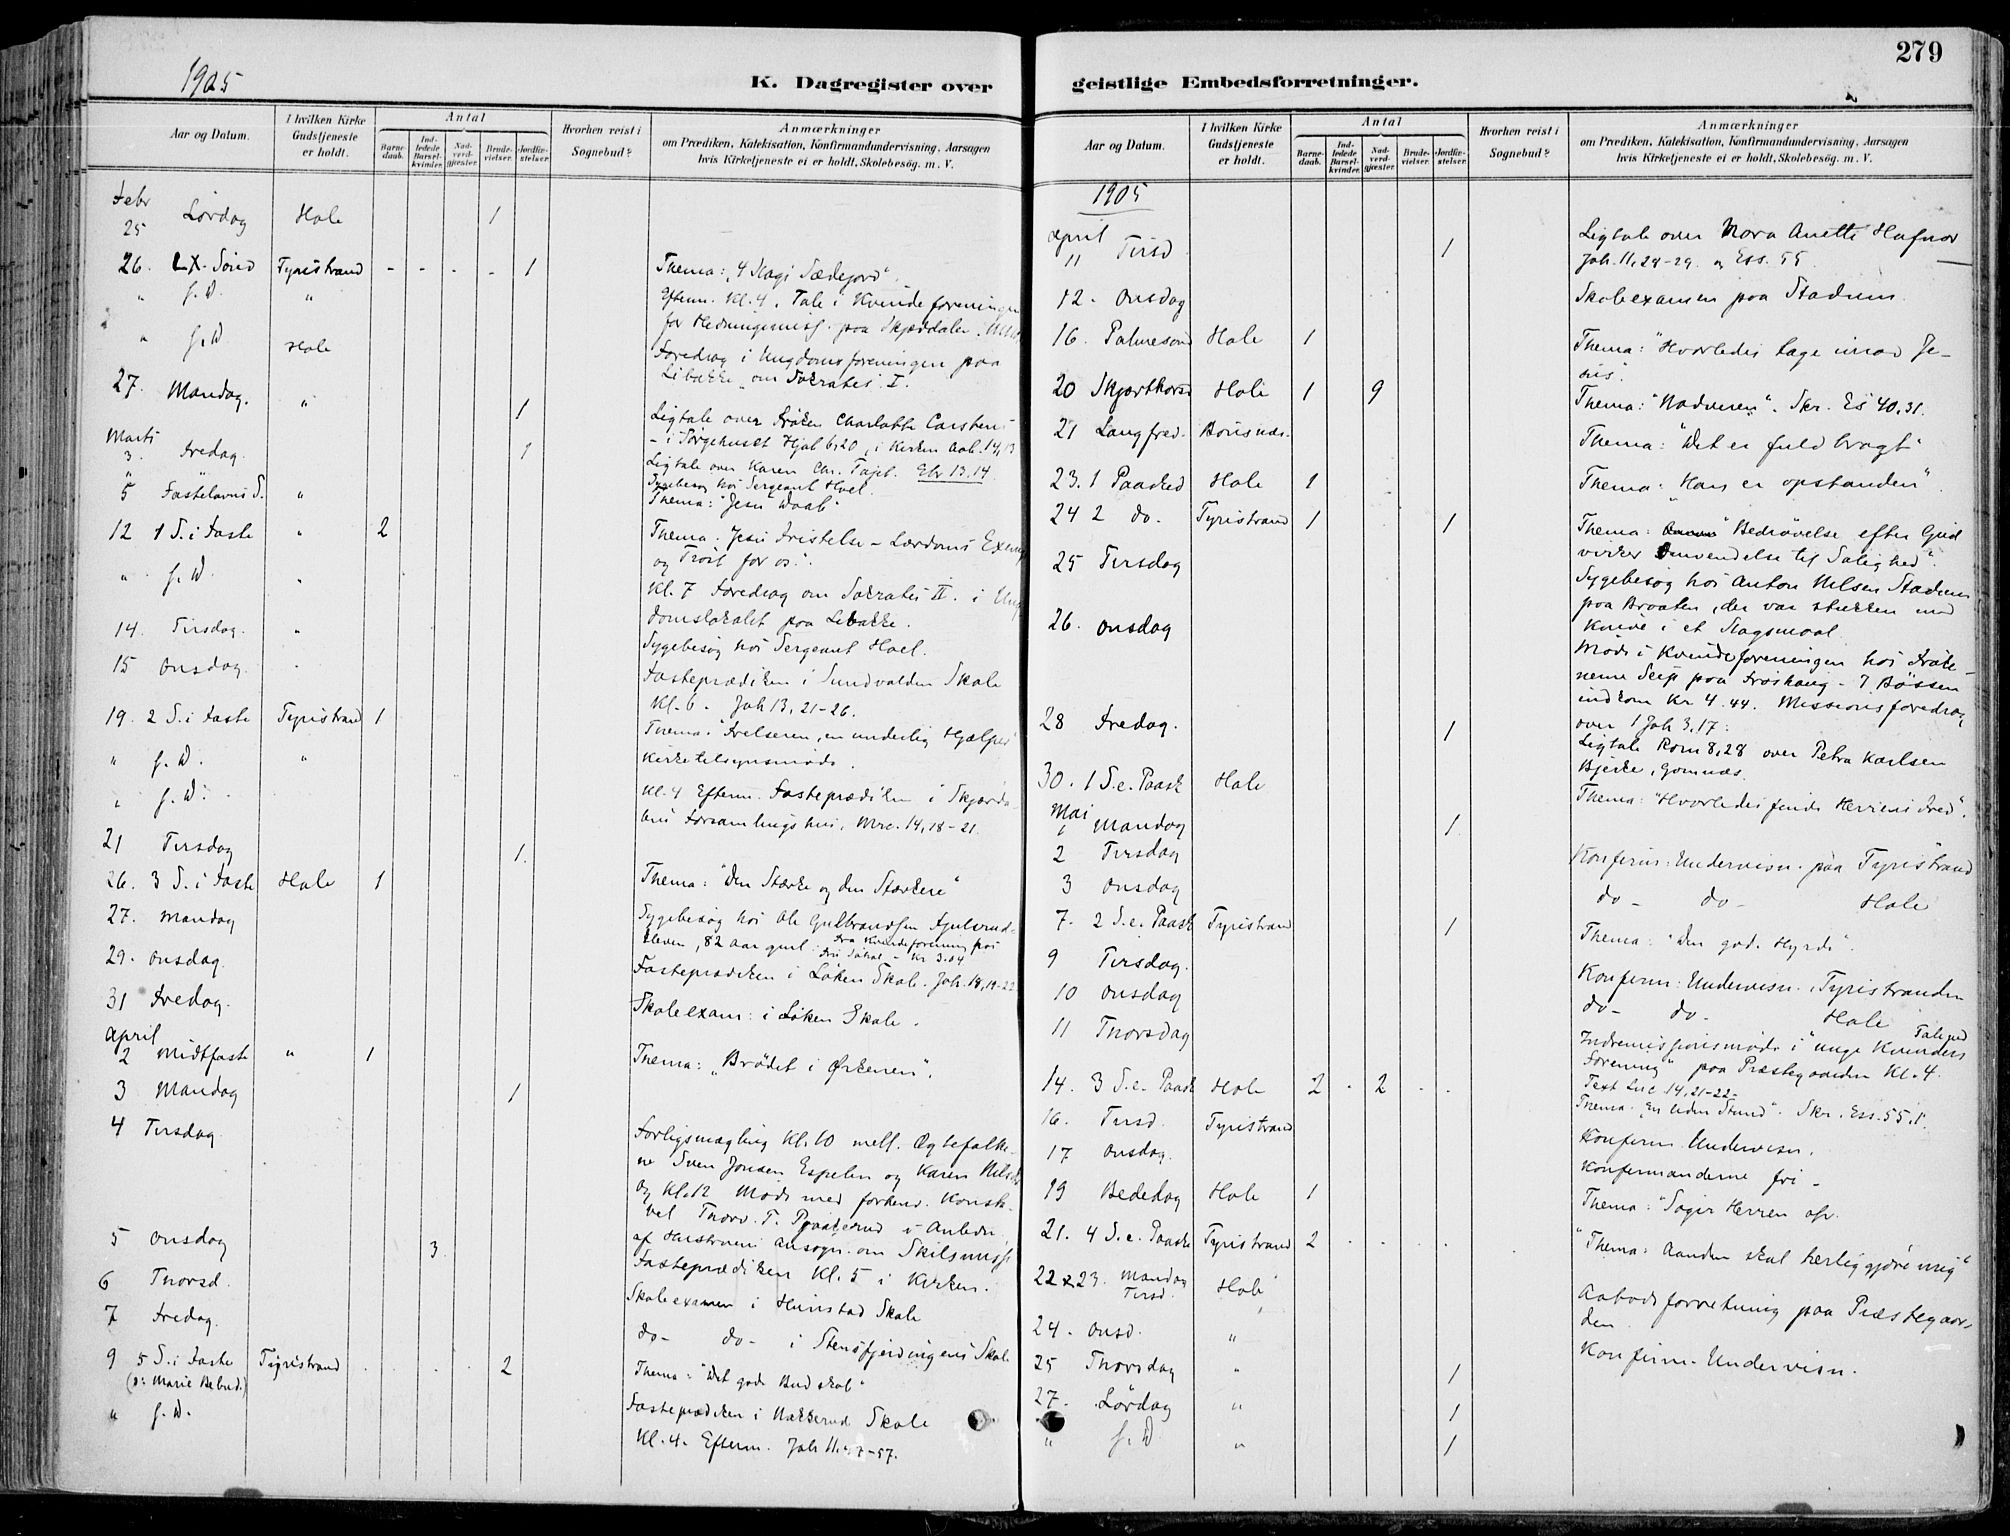 279
1905
K. Dagregister over geistlige Embedsforretninger.
Aar og Datum.
I hvilken Kirke Gudstjeneste er holdt.
Antal
Barne-daab.
Ind-ledede Barsel-kvinder.
Nad-verd-gjester.
Brude-vielser.
Jordfæ-stelser.
Hvorhen reist i Sognebud?
Anmærkninger
om Prædiken, Katekisation, Konfirmandundervisning, Aarsagen
hvis Kirketjeneste ei er holdt, Skolebesøg. m. V.
Febr
25 Lørdag Hole 1
26. LX. Sønd Tyristrand - - - - 1 Thema: "4 Slags Sædejord"
" s. D. " Efterm. Kl. 4. Tale i Kvindeforeningen
for Hedningemiss. paa Skjæddalen.
" s. D. Hole Foredrag i Ungdomsforeningen paa
Libakke om Sokrates I.
27. Mandag. " 1 Ligtale over Frøken Charlotte Carstens
- i Sørgehuset Hjob 6,20, i Kirken Aab. 14,13
Marts
3. Fredag. 1 Ligtale over Karen Chr. Ebr 13.14.
" Sygebesøg hos Sergeant Hoel.
5 Fastelavns S. " Thema: "Jesu Daab"
12 1 S. i Faste " 2 Thema: Jesu Fristelse - Lærdoms
og Trøst for os."
" s. D. " Kl. 7 Foredrag om Sokrates II. i Ung
domslokalet paa Libakke.
14. Tirsdag. " Sygebesøg hos Sergeant Hoel.
15 Onsdag. Fasteprædiken i Sundvolden Skole
Kl. 6 - Joh 13, 21-26.
19. 2 S. i Faste Tyristrand 1 Thema: "Frelseren, en underlig Hjælper"
" s. D. " Kirketilsynsmøde.
" s. D. Kl. 4 Efterm. Fasteprædiken i Skjærda
lens Forsamlingshus, Mrc. 14,18-21.
21 Tirsdag 1.
26. 3 S. i Faste Hole 1 Thema: "Den Stærke og den Stærkere"
27. Mandag Sygebesøg hos Ole Gulbrandsen Fjulsrud-
eleven, 82 aar gml. Fra Kvindeforening hos
Kr 3.04
29. Onsdag. Fasteprædiken i Løken Skole. Joh. 18, 19-22
31 Fredag. Skoleexam: i Løken Skole.
April
2 Midtfaste " 1 Thema: "Brødet i Ørkenen".
3 Mandag 1
4 Tirsdag Forligsmægling Kl. 10 mell. Ægtefolke-
ne Sven Jensen Espelien og Karen Nilsd.
og Kl. 12 Møde med forhenv. Konsta-
vel Thorv. T. i Anledn.
af Hustruens ansogn. om Skilsmisse
5 Onsdag 3. Fasteprædiken Kl. 5 i Kirken.
6 Thorsd. Skoleexamen i Hinstad Skole
7 Fredag. do- do- i Stensfjerdingens Skole
9 5 S. i Faste Tyristrand 2 Thema: "Det gode Budskab"
(o: Marie Bebud.)
" s. D. Fasteprædiken i Nakkerud Skole
Kl. 4. Efterm. Joh 11.47-57.
1905
April
11 Tirsd 1 Ligtale over Nora Anette Hafnor
Joh. 11,28-29. og Ess. 55
12. Onsdag Skoleexamen paa Stadum.
16. Palmesønd Hole 1 Thema: "Hvorledes tage imod Je-
sus".
20 Skjærthorsd Hole 1 9 Thema: "Nadveren". Skr. Es 40,31.
21 Langfred. Bønsnæs. Thema: "Det er fuldbragt"
23. 1 Paasked Hole 1 Thema: "Han er opstanden".
24 2 do. Tyristrand 1 1 Thema: "Bedrøvelse efter Gud
virker Omvendelse til Salighed".
25 Tirsdag Sygebesøg hos Anton Nilsen Stadum
paa Braaten, der var stukken med
Kniv i et Slagsmaal.
26. Onsdag Møde i Kvindeforeningen hos Frøke-
nerne Seip paa Froshaug - I Bøssen
indkom Kr 4.44. Missionsforedrag
over 1 Joh 3,17:
28 Fredag. 1 Ligtale Rom 8,28 over Petra Karlsen
Bjerke, Gomnæs.
30. 1 S. e. Paask Hole Thema: "Hvorledes finde Herrens Fred".
Mai
1 Mandag 1.
2 Tirsdag Konfirm: Undervisn. paa Tyristrand
3 Onsdag do- do- Hole
7. 2 S. e. Paask Tyristrand 1 Thema: "Den gode Hyrde".
9 Tirsdag. Konfirm: Undervisn. Tyristranden
10 Onsdag do- do- Hole
11 Thorsdag Indremissionsmøde i "unge Kvinders
Forening" paa Præstegaarden Kl. 4.
Text Luc 14, 21-22-
14. 3 S. e. Paask Hole 2 - 2 - - Thema. "En liden Stund". Skr. Ess. 55,1.
16. Tirsd. Tyristrand Konfirm. Undervisn.
17 Onsdag. Konfirmanderne fri -
19 Bededag Hole 1 Thema: "Søger Herren
21. 4 S. e. Paask Tyristrand 2 - - - - "Thema: Aanden skal herliggjøre mig"
22 & 23. Mandag Tirsd. Hole Aabodsforretning paa Præstegaar-
den
24. Onsd. " Konfirm. Undervisn.
25 Thorsdag " 1
27. Lørdag " 1
" s. D " 1